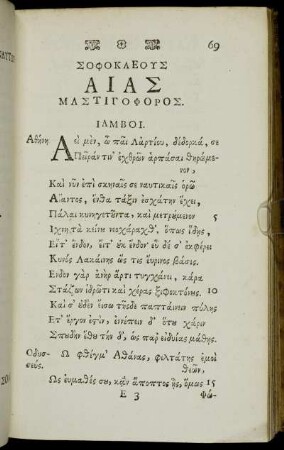 69
ΣΟΦΟΚΛΕΟΥΣ
ΑΙΑΣ
ΜΑΣΤΙΓΟΦΟΡΟΣ.
ΙΑΜΒΟΙ.
Αθήνη. Αεὶ μὲν, ὦ παῖ Λαρτίου, δέδορκά, σε
Πεῖράν τιν' ἐχθρῶν ἁρπάσαι θηρώμε-
νον,
Καὶ νῦν ἐπὶ σκηναῖς σε ναυτικαῖς ὁρῶ
Αἴαντος, ἔνθα τάξιν ἐσχάτην ἔχει,
Πάλαι κυνηγετοῦντα, καὶ μετρούμενον 5
Ιχνη τὰ κείνου νεοχάραχθ', ὅπως ἴδῃς,
Εἴτ' ἔνδον, εἴτ' οὐκ ἔνδον· εὖ δέ σ' ἐκφέρει
Κυνὸς Λακαίνης ὥς τις εὔρινος βάσις.
Ενδον γὰρ ἁνὴρ ἄρτι τυγχάνει, κάρα
Στάζων ἱδρῶτι καὶ χέρας ξιφοκτόνους. 10
Καί σ' οὐδὲν εἴσω τῆσδε παπταίνειν πύλης
Ετ' ἔργον ἐστὶν, ἐννέπειν δ' ὅτου χάριν
Σπουδὴν ἔθου τήνδ', ὡς παρ' εἰδυίας μάθῃς.
Οδυσ- Ω φθέγμ' Αθάνας, φιλτάτης ἐμοὶ
σεύς. θεῶν,
Ως εὐμαθές σου, κᾂν ἄποπτος ᾖς, ὅμως 15
E 3 Φώ-